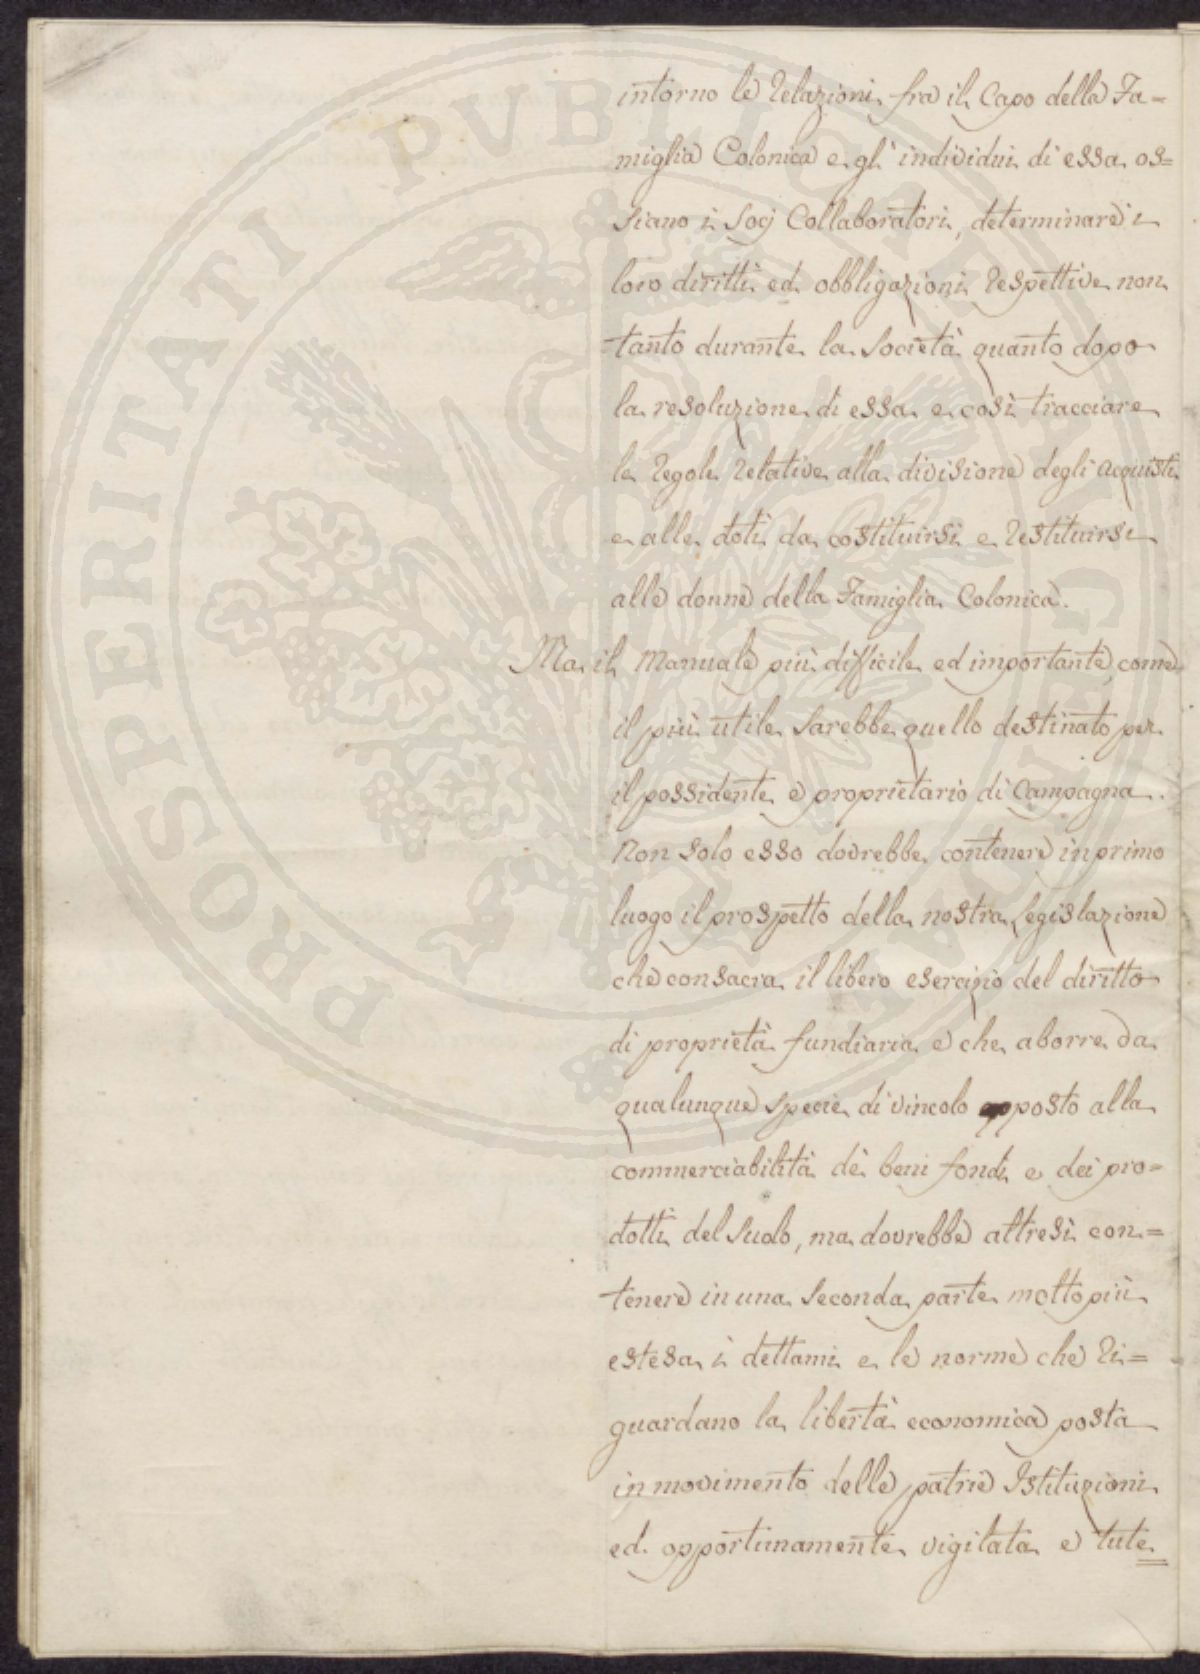 intorno le relazioni fra il Capo della Fa=
miglia Colonica e gl'individui di essa os=
siano i Socj Collaboratori, determinare i
loro diritti ed obbligazioni respettive non
tanto durante la Società quanto dopo
la resoluzione di essa e così tracciare
le regole relative alla divisione degli acquisti
e alle doti da costituirsi e restituirsi
alle donne della Famiglia Colonica.
Ma il Manuale più difficile ed importante, come
il più utile sarebbe quello destinato per
il possidente e proprietario di Campagna.
Non solo esso dovrebbe contenere in primo
luogo il prospetto della nostra Legislazione
che consacra il libero esercizio del diritto
di proprietà fundiaria e che aborre da
qualunque specie di vincolo opposto alla
commerciabilità dei beni fondi e dei pro=
dotti del suolo, ma dovrebbe altresì con=
tenere in una seconda parte molto più
estesa i dettami e le norme che ri=
guardano la libertà economica posta
in movimento delle patrie Istituzioni
ed opportunamente vigilata e tute
PROSPERITATI PVBLICAE AVGENDAE